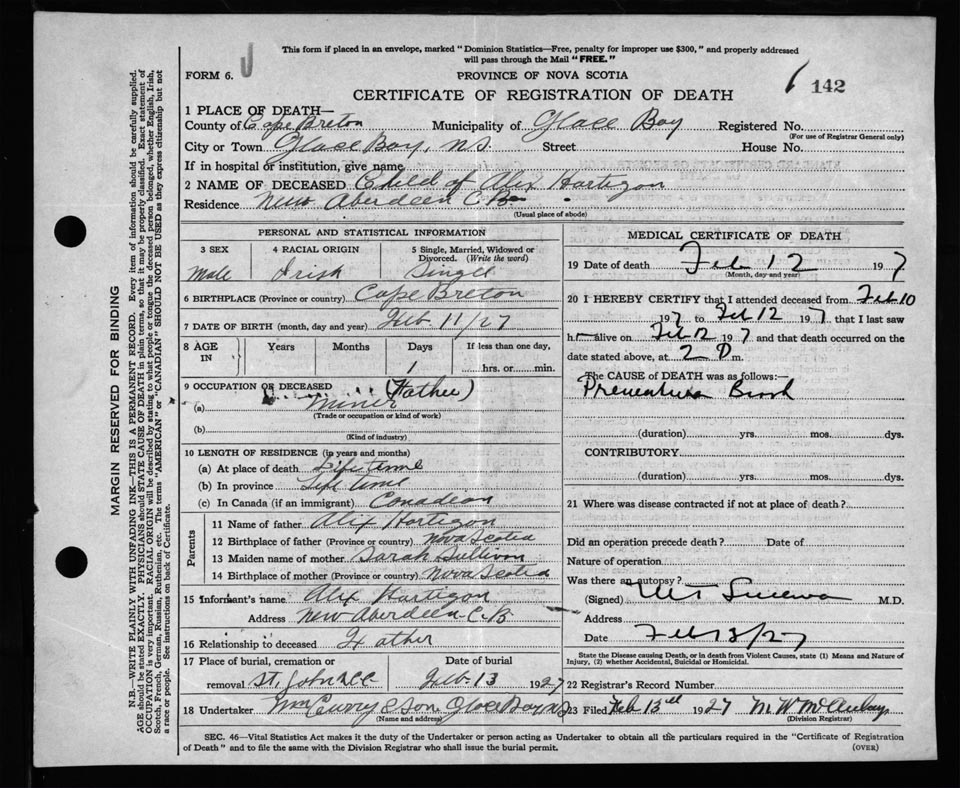 This form if placed in an envelope, marked "Dominion Statistics—Free, penalty for improper use $300," and properly addressed
will pass through the Mail "FREE."
FORM 6.
PROVINCE OF NOVA SCOTIA
142
CERTIFICATE OF REGISTRATION OF DEATH
1 PLACE OF DEATH—
County of Cape Breton Municipality of Glace Bay Registered No.
(For use of Registrar General only)
City or Town Glace Bay, N.S. Street House No.
If in hospital or institution, give name
2 NAME OF DECEASED Child of Alex Hartigon
Residence New Aberdeen C.B.
(Usual place of abode)
MARGIN RESERVED FOR BINDING
N.B.—WRITE PLAINLY WITH UNFADING INK—THIS IS A PERMANENT RECORD. Every item of information should be carefully supplied.
AGE should be stated EXACTLY. PHYSICIANS should STATE CAUSE OF DEATH in plain terms, so that it may be properly classified. Exact statement of
OCCUPATION is very important. RACIAL ORIGIN will be described by stating to what people or tongue the deceased person belonged, whether English, Irish,
Scotch, French, German, Russian, Ruthenian, etc. The terms "AMERICAN" or "CANADIAN" SHOULD NOT BE USED as they express citizenship but not
a race or people. See instructions on back of Certificate.
PERSONAL AND STATISTICAL INFORMATION
3 SEX 4 RACIAL ORIGIN 5 Single, Married, Widowed or
Divorced. (Write the word)
Male Irish Single
6 BIRTHPLACE (Province or country) Cape Breton
7 DATE OF BIRTH (month, day and year) Feb 11/27
8 AGE IN Years Months Days If less than one day,
1 hrs. or min.
9 OCCUPATION OF DECEASED (Father)
(a) miner
(Trade or occupation or kind of work)
(b)
(Kind of industry)
10 LENGTH OF RESIDENCE (in years and months)
(a) At place of death Life time
(b) In province Life time
(c) In Canada (if an immigrant) Canadean
Parents
11 Name of father Alix Hartigon
12 Birthplace of father (Province or country) Nova Scotia
13 Maiden name of mother Sarah Sullivan
14 Birthplace of mother (Province or country) Nova Scotia
15 Informant's name Alix Hartigon
Address New Aberdeen C.B
16 Relationship to deceased Father
17 Place of burial, cremation or Date of burial
removal St. John Feb. 13 1927
18 Undertaker Wm Curry & Son. Glace Bay N.S
(Name and address)
MEDICAL CERTIFICATE OF DEATH
19 Date of death Feb 12 197
(Month, day and year)
20 I HEREBY CERTIFY that I attended deceased from Feb 10
197 to Feb 12 197 that I last saw
h alive on Feb 12 197 and that death occurred on the
date stated above, at 2 P m.
The CAUSE OF DEATH was as follows:
Premature Birth
(duration) yrs. mos. dys.
CONTRIBUTORY
(duration) yrs. mos. dys.
21 Where was disease contracted if not at place of death?
Did an operation precede death? Date of
Nature of operation
Was there an autopsy?
(Signed) M.D.
Address
Date Feb 13/27
State the Disease causing Death, or in death from Violent Causes, state (1) Means and Nature of
Injury, (2) whether Accidental, Suicidal or Homicidal.
22 Registrar's Record Number
23 Filed Feb 13th 1927
(Division Registrar)
SEC. 46—Vital Statistics Act makes it the duty of the Undertaker or person acting as Undertaker to obtain all the particulars required in the "Certificate of Registration
of Death" and to file the same with the Division Registrar who shall issue the burial permit. (OVER)